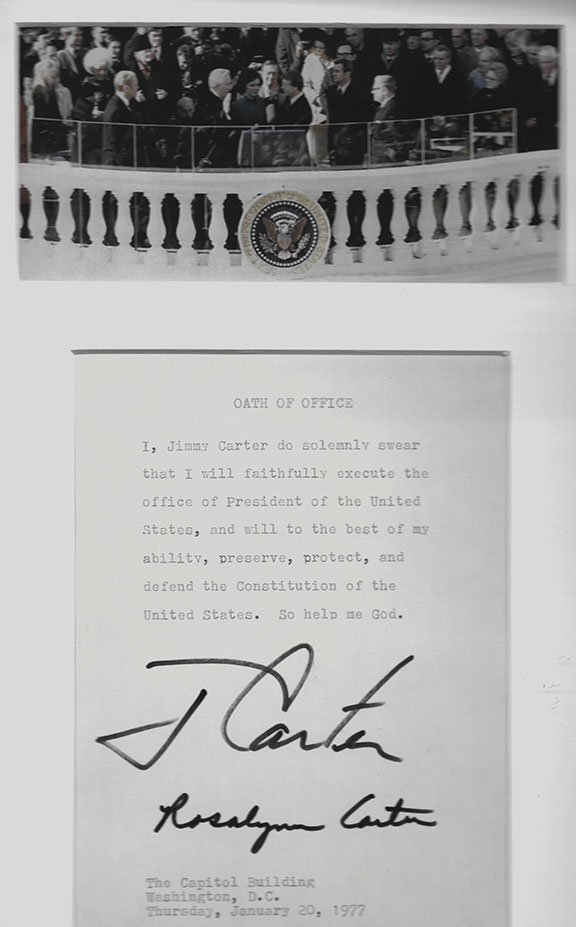 OATH OF OFFICE
I, Jimmy Carter do solemnly swear
that I will faithfully execute the
office of President of the United
States, and will to the best of my
ability, preserve, protect, and
defend the Constitution of the
United States. So help me God.
J Carter
Rosalynn Carter
The Capitol Building
Washington, D.C.
Thursday, January 20, 1977